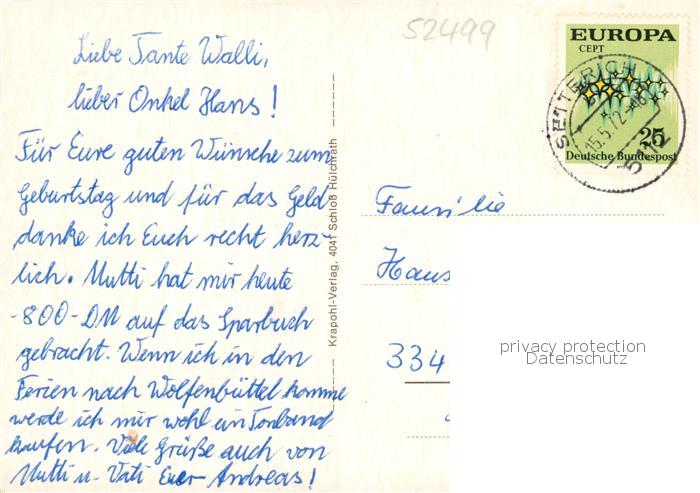 52499
Liebe Tante Walli,
lieber Onkel Hans!
Für Eure guten Wünsche zum
Geburtstag und für das Geld
danke ich Euch recht herz-
lich. Mutti hat mir heute
-800-DM auf das Sparbuch
gebracht. Wenn ich in den
Ferien nach Wolfenbüttel komme
werde ich mir wohl ein Tonband
kaufen. Viele Grüße auch von
Mutti u. Vati Euer Andreas!
Krapohl-Verlag, 4041 Schloß Hülchrath
EUROPA
CEPT
25
Deutsche Bundespost
SETTERICH
15.5.72-18
Familie
Hans
334
privacy protection
Datenschutz